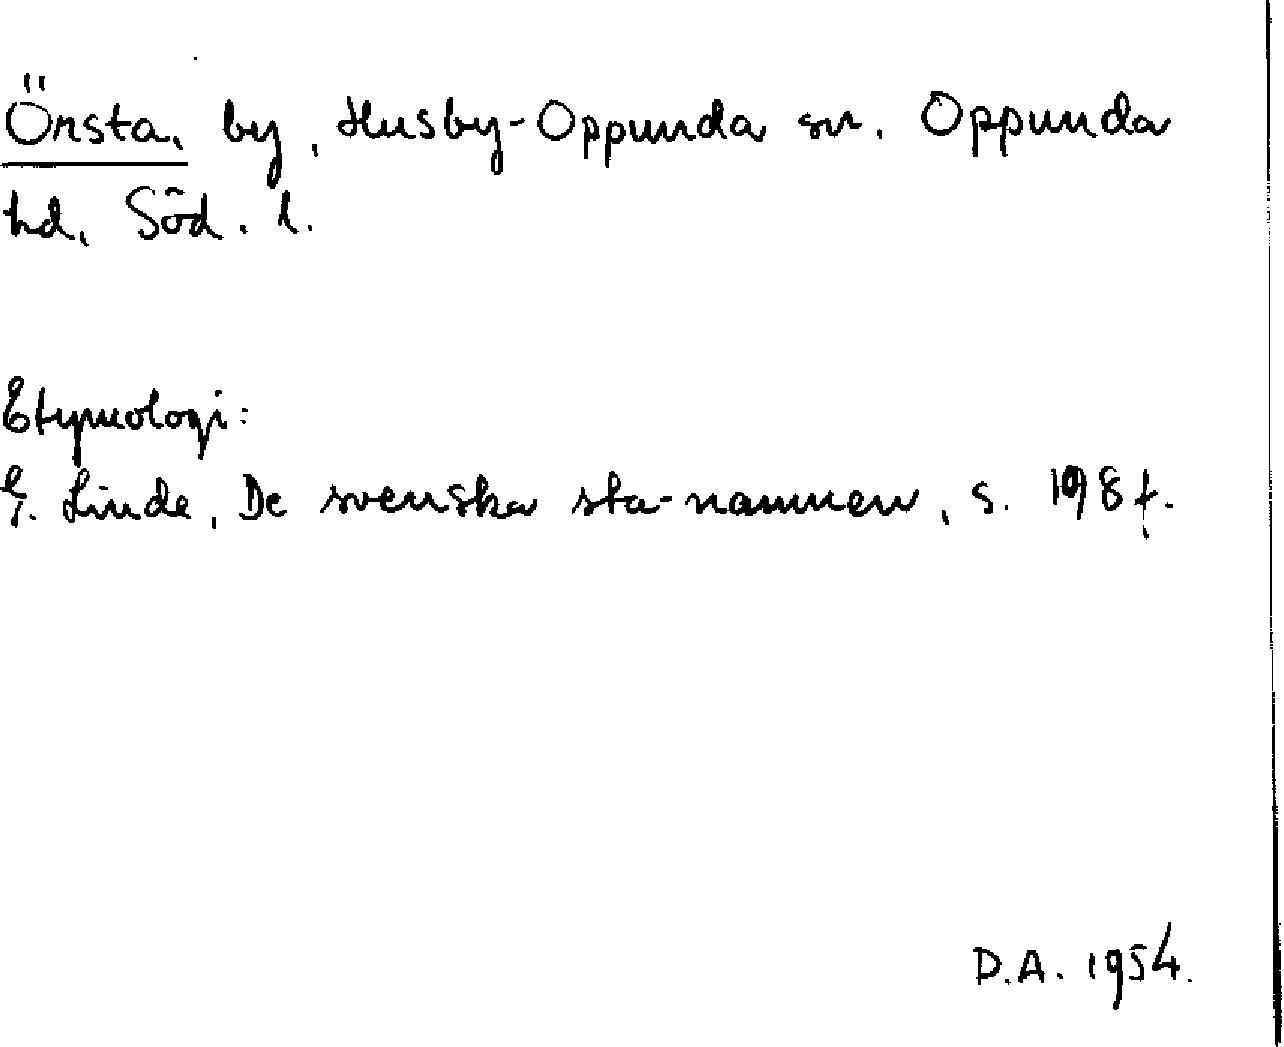 Örsta, by, Husby-Oppunda sn. Oppunda
hd, Söd. l.
Etymologi:
G. Linde, De svenska sta-namnen, s. 198 f.
D.A. 1954.